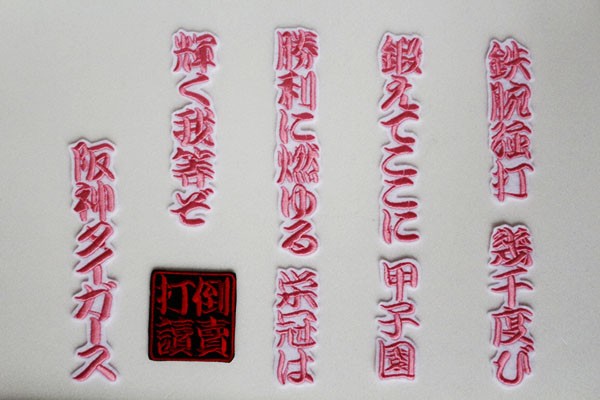 鉄腕強打 幾千度び
鍛えてここに 甲子園
勝利に燃ゆる 栄冠は
輝く我等ぞ
倒賣
打讀
阪神タイガース